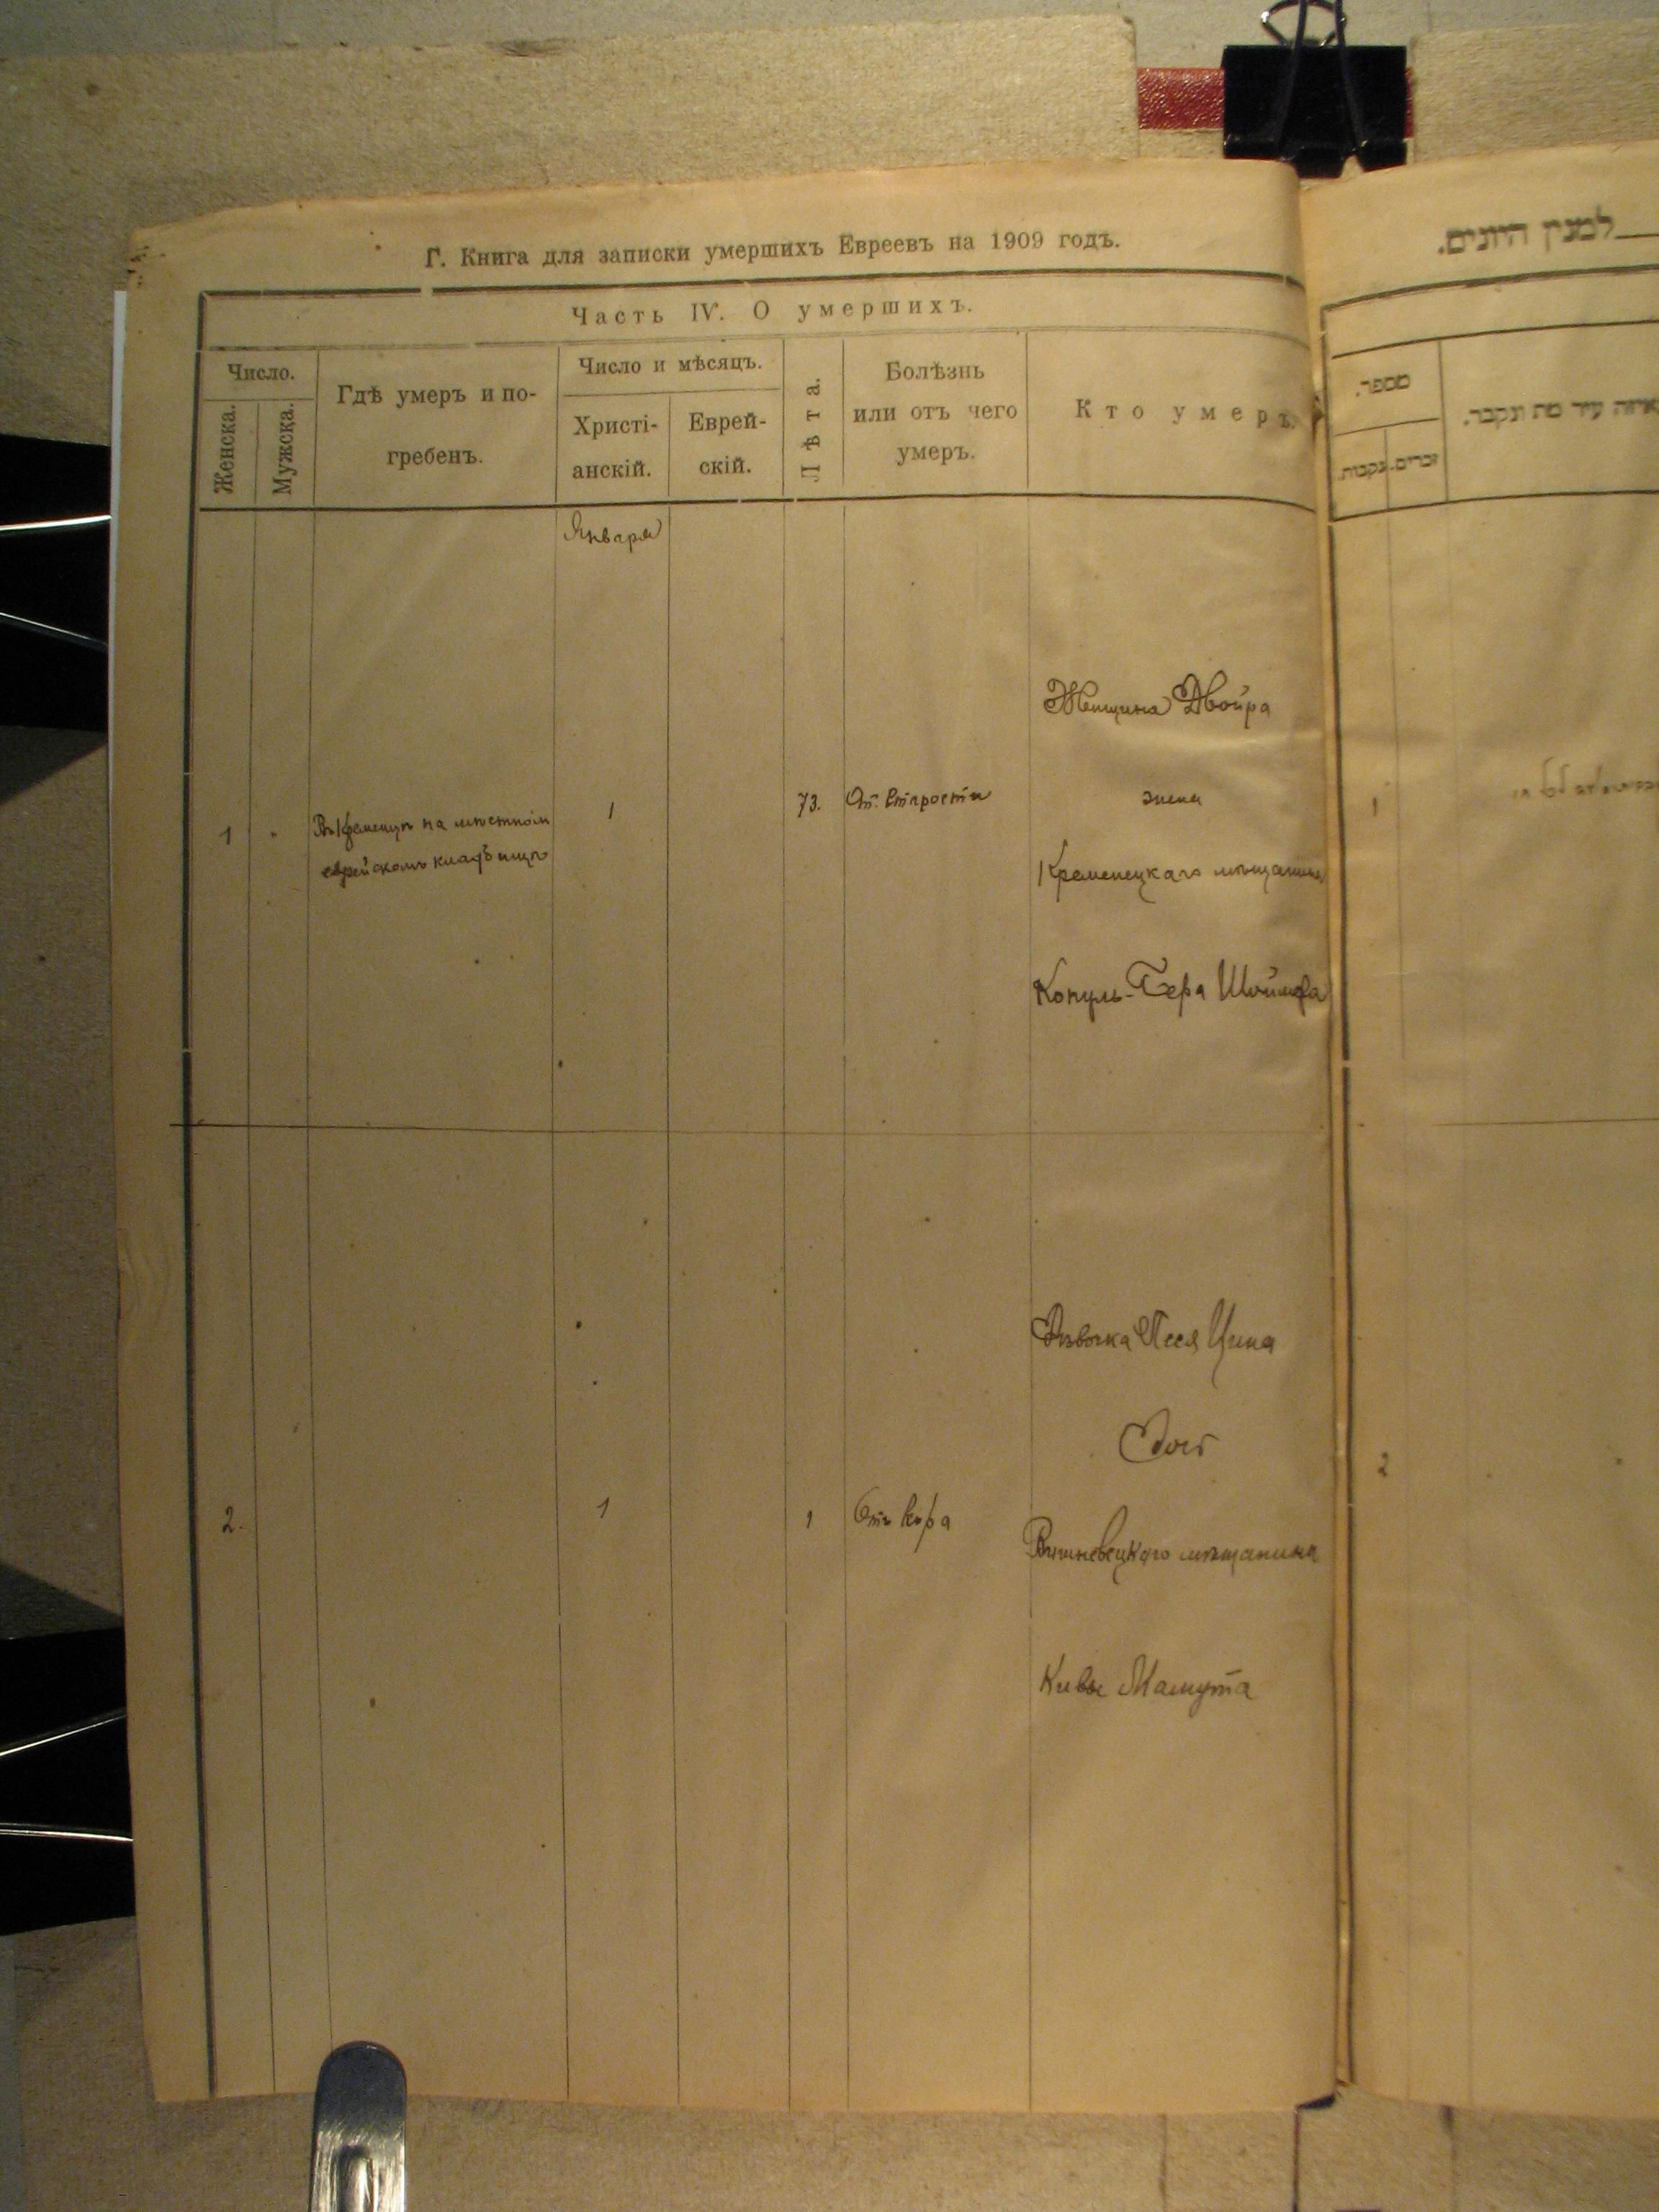 Г. Книга для записки умершихъ Евреевъ на 1909 годъ.
Часть IV. О умершихъ.
Число.
Женска.
Мужска.
Гдѣ умеръ и по-
гребенъ.
Число и мѣсяцъ.
Христі-
анскій.
Еврей-
скій.
Лѣта.
Болѣзнь
или отъ чего
умеръ.
Кто умеръ.
Января
1
Въ Кременцѣ на мѣстном
еврейскомъ кладбищѣ
1
73.
От. Старости
Женщина Двойра
жена
Кременецкаго мѣщанина
Копуль-Бера
2.
1
1
Отъ Кора
Дѣвочка Песя
Дочь
Вишневецкого мѣщанина
Кивы
למנין היונים.
מספר.
זכרים.
נקבות.
איזה עיר מת ונקבר.
1
2